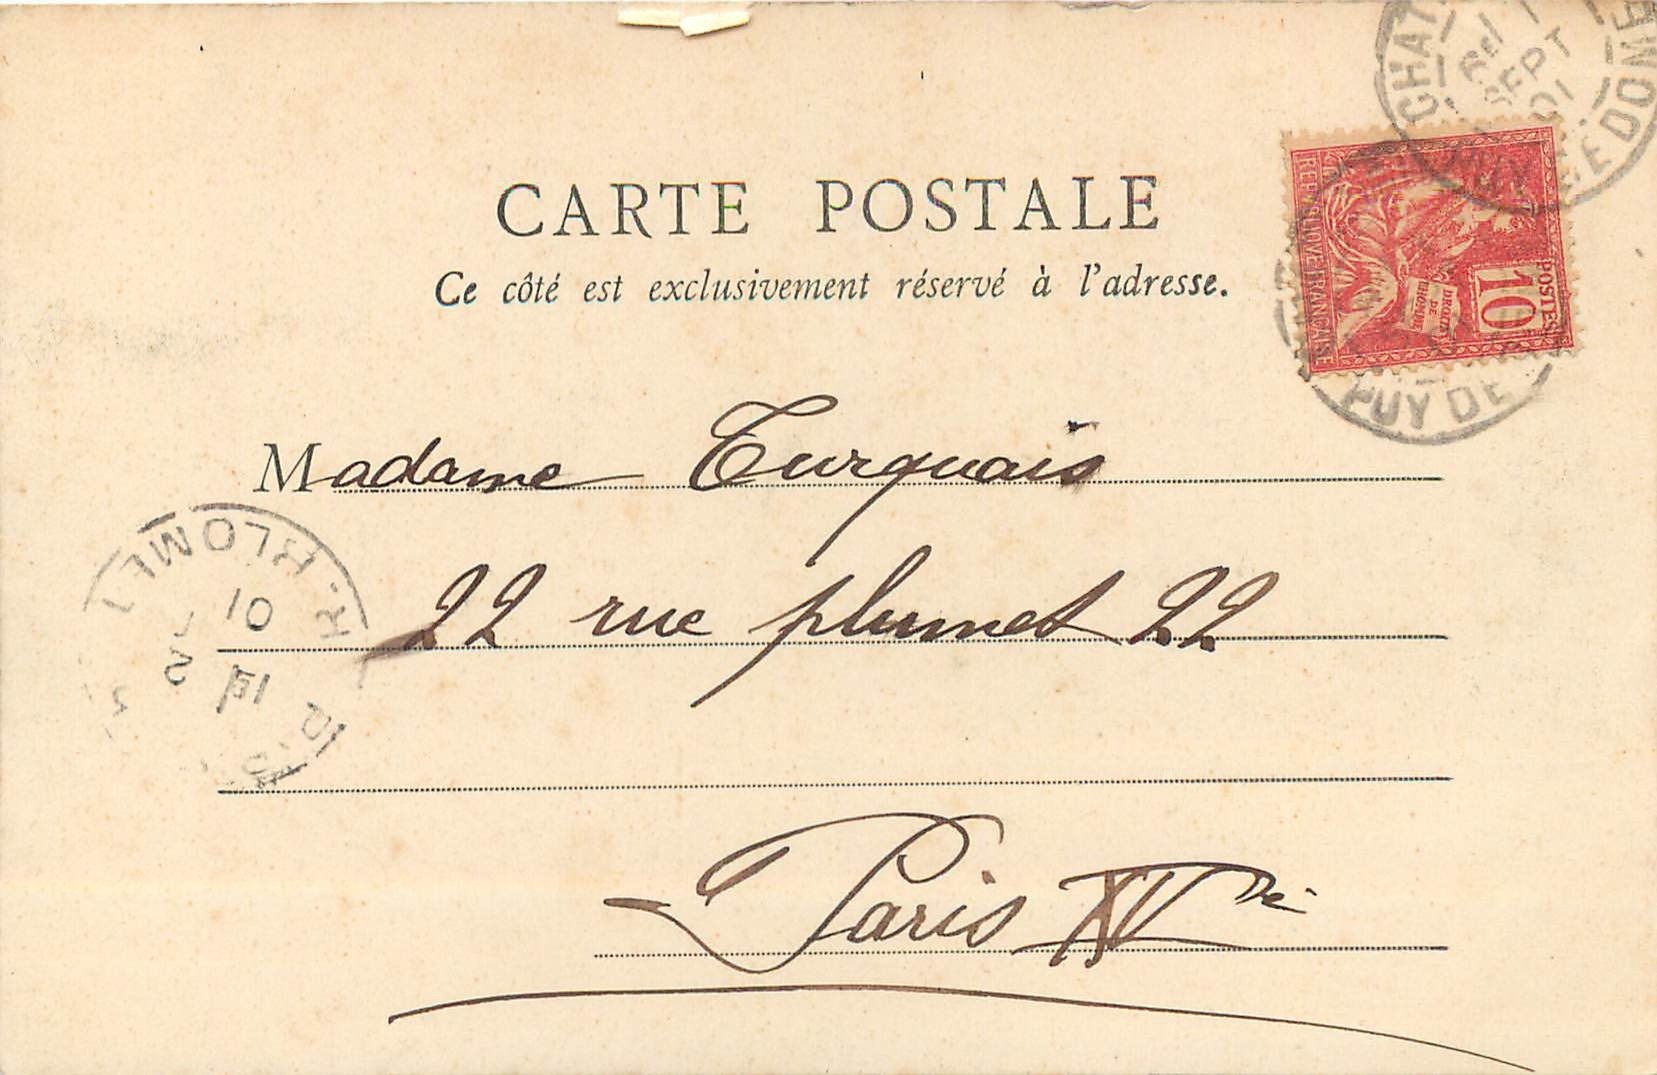 CARTE POSTALE
Ce côté est exclusivement réservé à l'adresse.
REPUBLIQUE FRANÇAISE
POSTES
10
DROITS
DE
L'HOMME
SEPT
01
PUY DE DOME
PUY DE
Madame Turquais
22 rue plumet 22
Paris XVe
R. BLOMET
01